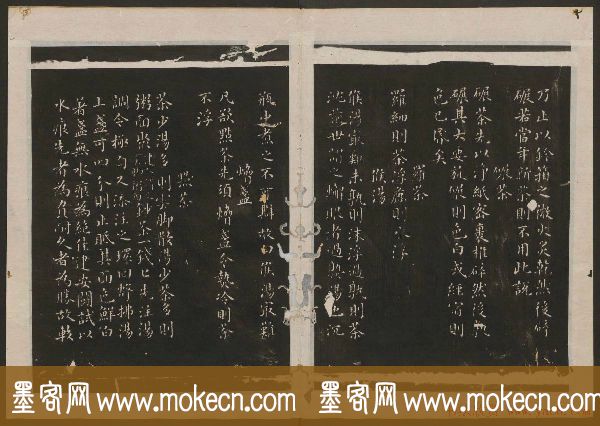 乃止以鈐箝之微火炙乾然後碎
碾若當年新茶則不用此說
碾茶
碾茶先以淨紙密裹椎碎然後熟
碾其大要旋碾則色白或經宿則
色已昏矣
羅茶
羅細則茶浮麤則水浮
候湯
候湯最難未熟則沫浮過熟則茶
沈前世謂之蟹眼者過熟湯也沉
瓶中煮之不可辯故曰候湯最難
熁盞
凡欲點茶先須熁盞令熱冷則茶
不浮
點茶
茶少湯多則雲脚散湯少茶多則
粥面聚鈔茶一錢匕先注湯
調令極勻又添注之環回擊拂湯
上盞可四分則止眡其面色鮮白
著盞無水痕為絕佳建安鬭試以
水痕先者為負耐久者為勝故較
墨客网 www.mokecn.com 墨客网 www.mokecn.com